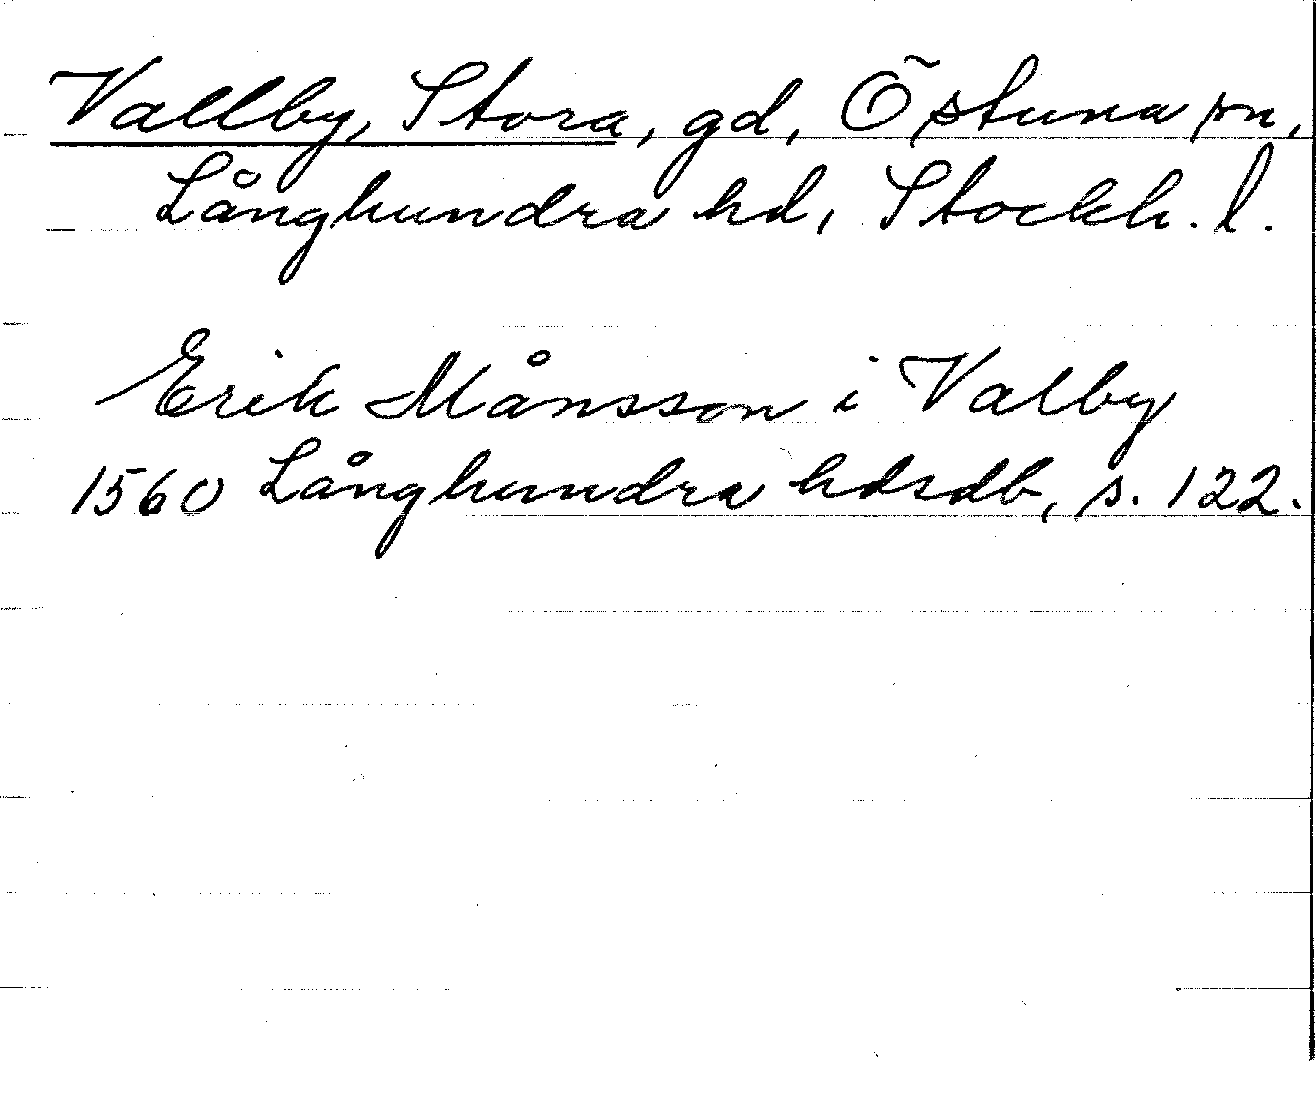 Vallby, Stora, gd, Östuna sn,
Långhundra hd, Stockh. l.
Erik Månsson i Valby
1560 Långhundra hdsdb, s. 122.